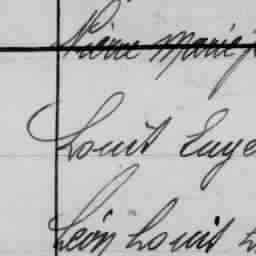 Pierre Marie J
Louis Euge
Léon Louis